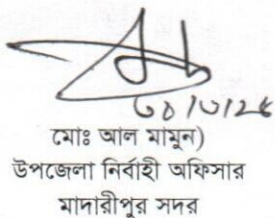 মোঃ আল মামুন)
উপজেলা নির্বাহী অফিসার
মাদারীপুর সদর